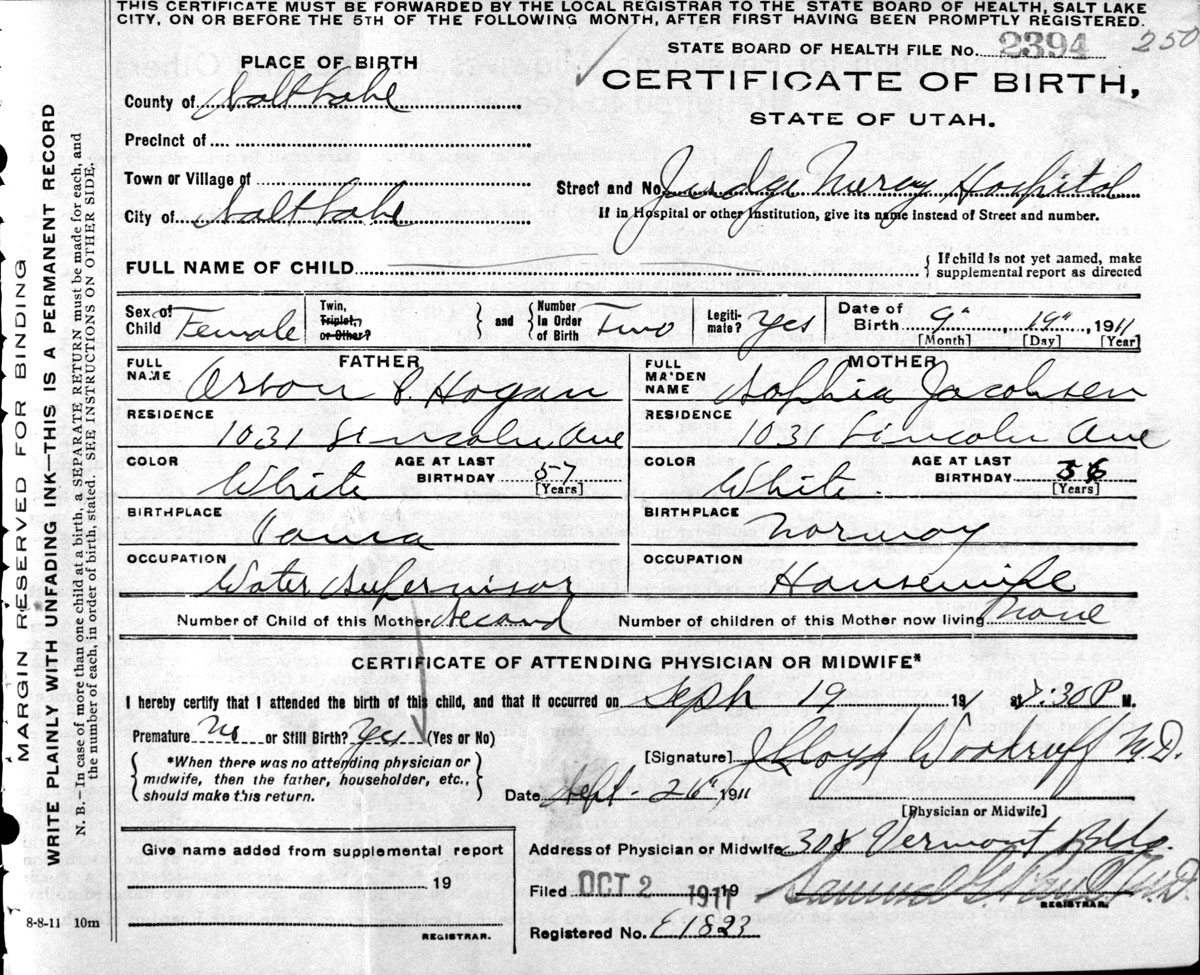 THIS CERTIFICATE MUST BE FORWARDED BY THE LOCAL REGISTRAR TO THE STATE BOARD OF HEALTH, SALT LAKE
CITY, ON OR BEFORE THE 5TH OF THE FOLLOWING MONTH, AFTER FIRST HAVING BEEN PROMPTLY REGISTERED.
STATE BOARD OF HEALTH FILE No. 2394 250
CERTIFICATE OF BIRTH,
STATE OF UTAH.
PLACE OF BIRTH
County of Salt Lake
Precinct of
Town or Village of
City of Salt Lake
Street and No. Judge Mercy Hospital
If in Hospital or other Institution, give its name instead of Street and number.
FULL NAME OF CHILD
If child is not yet named, make
supplemental report as directed
Sex of Child Female
Twin, Triplet, or Other?
and
Number In Order of Birth Two
Legiti-mate? Yes
Date of Birth 9", 19", 1911
[Month] [Day] [Year]
FATHER
FULL NAME Orson P. Hogan
RESIDENCE
1031 Lincoln Ave
COLOR White
AGE AT LAST BIRTHDAY 57
[Years]
BIRTHPLACE
OCCUPATION
Water Supervisor
MOTHER
FULL MAIDEN NAME Sophia Jacobsen
RESIDENCE
1031 Lincoln Ave
COLOR White.
AGE AT LAST BIRTHDAY
[Years]
BIRTHPLACE
Norway
OCCUPATION
Housewife
Number of Child of this Mother Second
Number of children of this Mother now living None
CERTIFICATE OF ATTENDING PHYSICIAN OR MIDWIFE*
I hereby certify that I attended the birth of this child, and that it occurred on Sept 19 191 at 7:30 P M.
Premature No or Still Birth? Yes (Yes or No)
*When there was no attending physician or
midwife, then the father, householder, etc.,
should make this return.
[Signature] J Lloyd Woodruff M.D.
Date Sept - 26", 1911
[Physician or Midwife]
Give name added from supplemental report
19
REGISTRAR.
Address of Physician or Midwife 308 Vermont Bldg.
Filed OCT 2 1911 19
Samuel G. M.D.
REGISTRAR.
Registered No. E1823
8-8-11 10m
MARGIN RESERVED FOR BINDING
WRITE PLAINLY WITH UNFADING INK—THIS IS A PERMANENT RECORD
N. B.-In case of more than one child at a birth, a SEPARATE RETURN must be made for each, and
the number of each, in order of birth, stated. SEE INSTRUCTIONS ON OTHER SIDE.